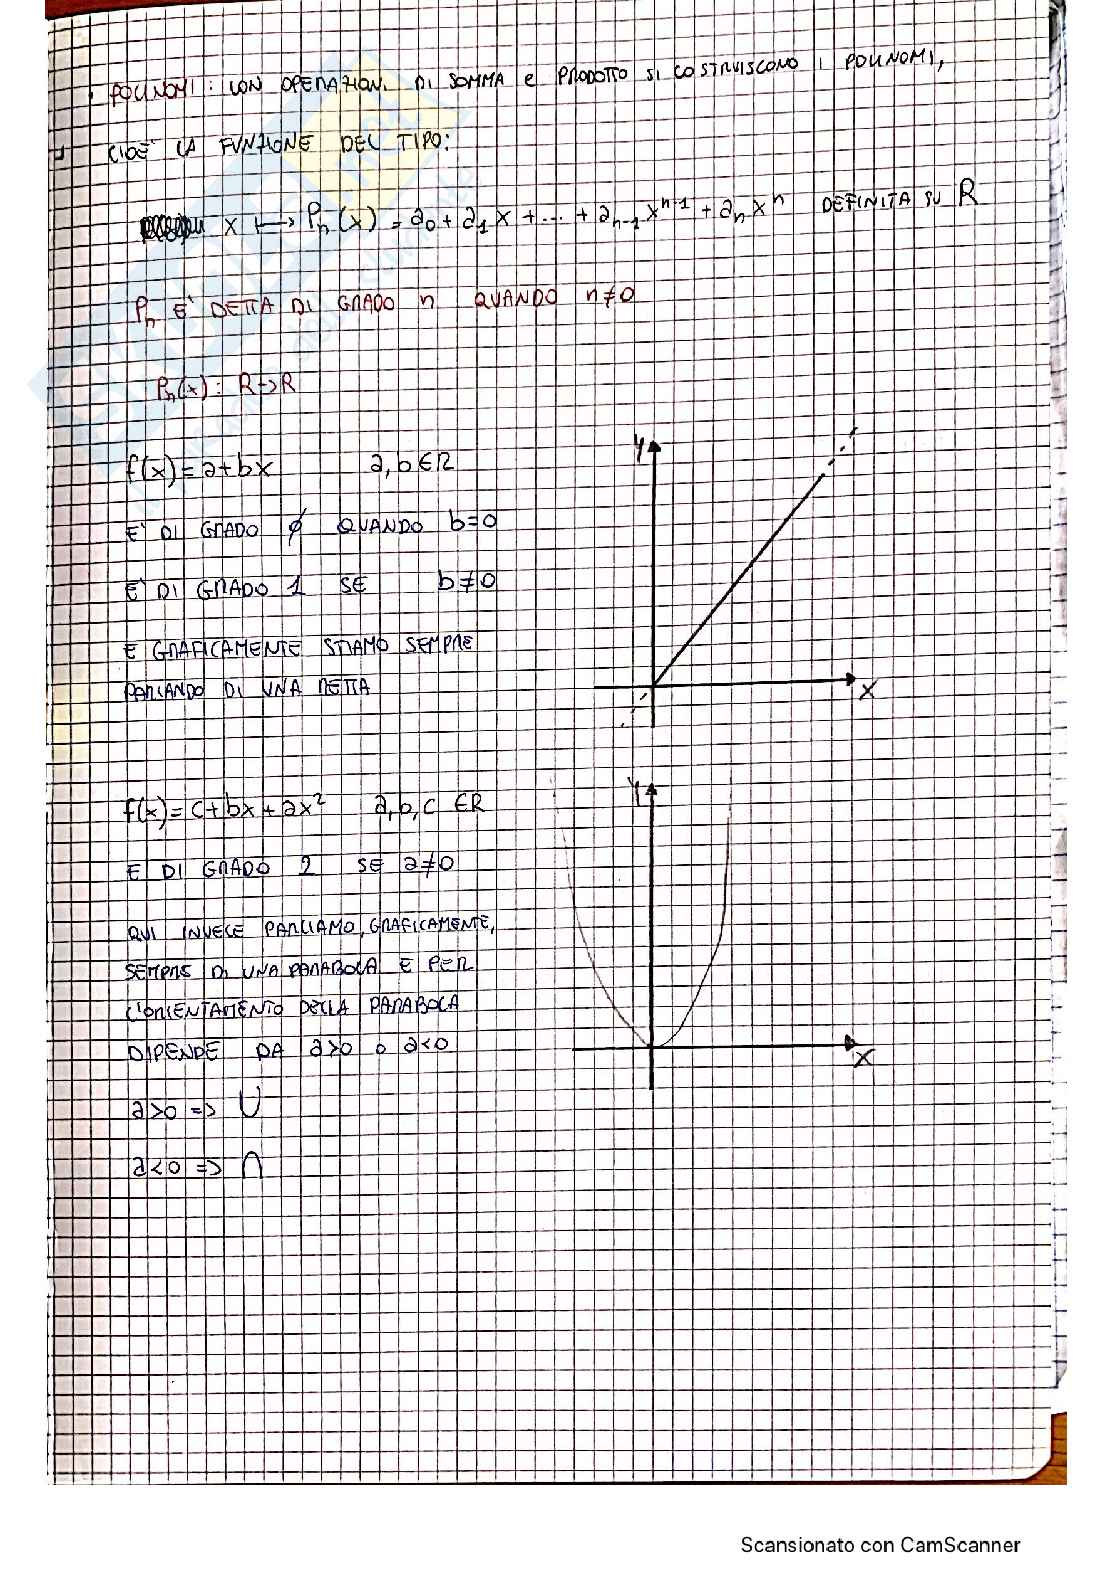 • POLINOMI: CON OPERAZIONI DI SOMMA e PRODOTTO SI COSTRUISCONO I POLINOMI,
CIOE' LA FUNZIONE DEL TIPO:
x ⟼ Pn(x) = a0 + a1x + ... + an-1x^n-1 + anx^n DEFINITA SU R
Pn E' DETTA DI GRADO n QUANDO n≠0
Pn(x): R->R
f(x)=a+bx a,b∈R
E' DI GRADO ∅ QUANDO b=0
E' DI GRADO 1 SE b≠0
E GRAFICAMENTE STIAMO SEMPRE
PARLANDO DI UNA RETTA
Y
X
f(x)=c+bx+ax² a,b,c ∈R
E DI GRADO 2 SE a≠0
QUI INVECE PARLIAMO, GRAFICAMENTE,
SEMPRE DI UNA PARABOLA E PER
L'ORIENTAMENTO DELLA PARABOLA
DIPENDE DA a>0 o a<0
a>0 => ∪
a<0 => ∩
Y
X
Scansionato con CamScanner